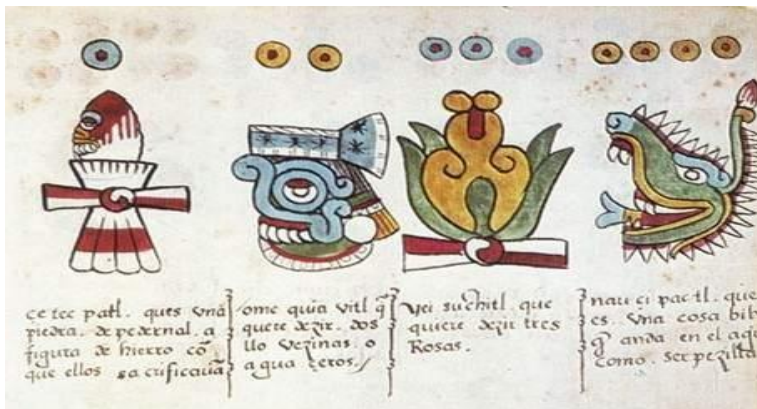 ce tec patl. ques vna
piedra. de pedernal. a
figura de hierro cō
que ellos sa crificauā
ome quia vitl q̄
quere dezir. dos
llo vezinas. o
agua zeros.
yei suchitl. que
quiere dezir tres
Rosas.
nau ci pactl. que
es. vna cosa bib
q̄ anda en el agu
como. serpezilla